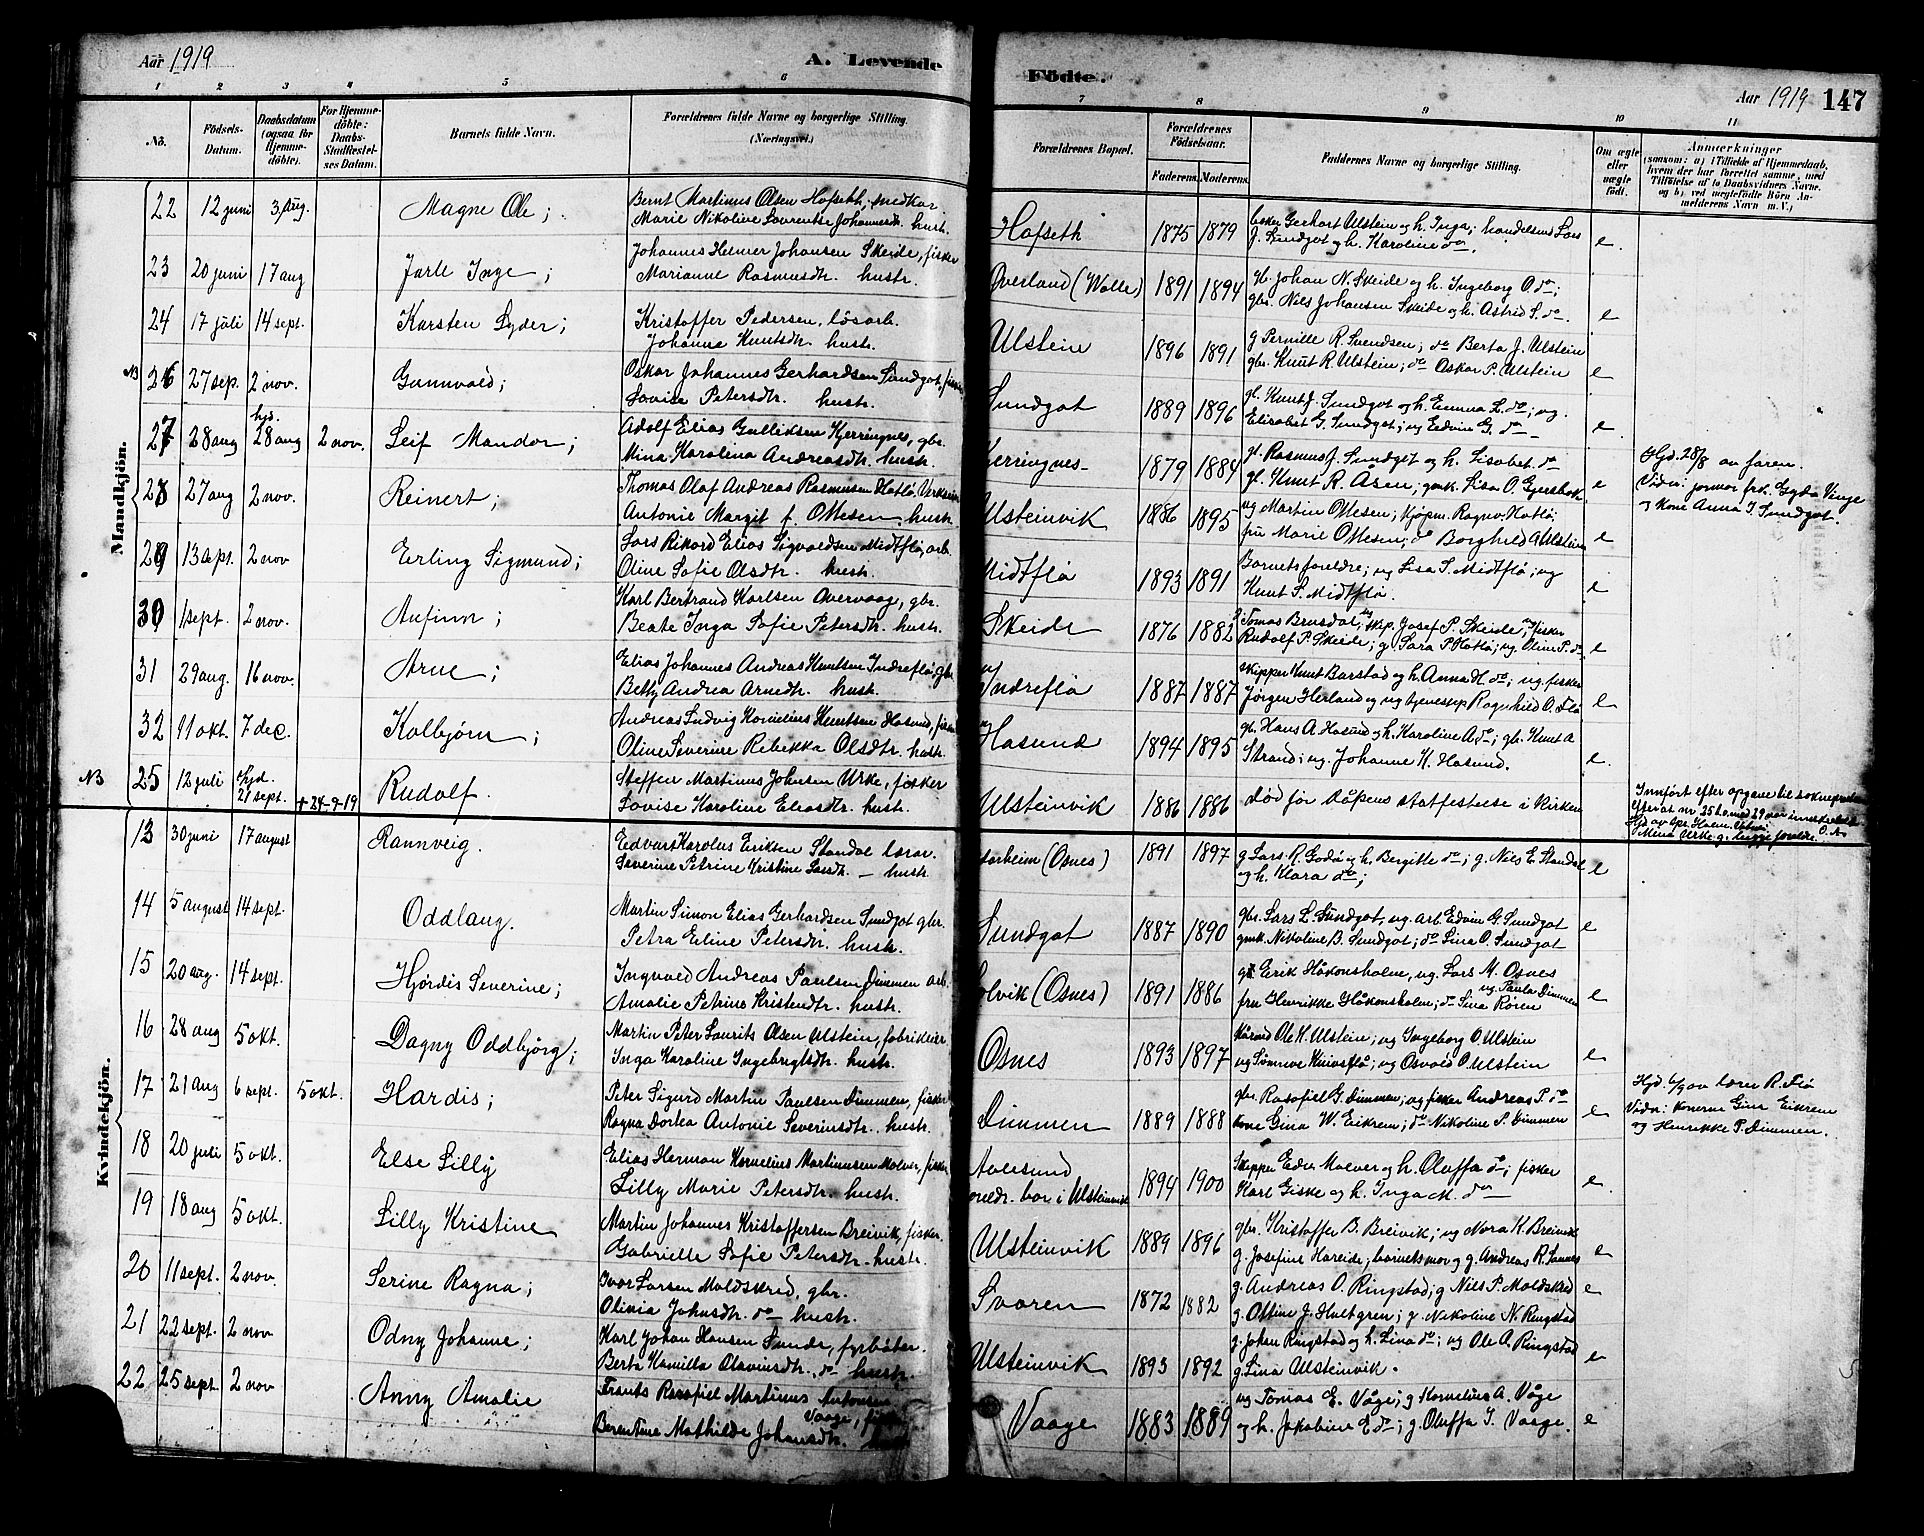 Aar 1919
A. Levende
1 2 3 4 5 6
No.
Födsels-Datum.
Daabsdatum (ogsaa for Hjemmedöbte).
For Hjemmedöbte: Daabs-Stadfæstelses Datum.
Barnets fulde Navn.
Forældrenes fulde Navne og borgerlige Stilling.
(Næringsvei.)
Mandkjön.
22 12 juni 3 aug. Magne Ole; Bernt Martinus Olsen Hofseth, snedker
Marie Nikoline Laurentse Johannesdtr. hustr.
23 20 juni 17 aug Jarle Inge; Johannes Helmer Johansen Skeide, fisker
Marianne Rasmusdtr. hustr.
24 17 juli 14 sept. Karsten Lyder; Kristoffer Pedersen, lösarb.
Johanna Knutsdtr. hustr.
NB 26 27 sep. 2 nov. Gunnvald; Oskar Johannes Gerhardsen Sundgot, fisker
Lovise Petersdtr. hustr.
27 28 aug hjd. 28 aug 2 nov. Leif Mandor; Adolf Elias Gulliksen Kjerringnes, gbr.
Mina Karolina Andreasdtr. hustr.
28 27 aug 2 nov. Reinert; Thomas Olaf Andreas Rasmussen Hatlö,
Antonie Margit f. Ottesen, hustr.
29 13 sept. 2 nov Erling Sigmund; Lars Rikard Elias Sigvaldsen Midtflö, arb.
Oline Sofie Olsdtr. hustr.
30 1 sept. 2 nov. Anfinn; Karl Bertrand Karlsen Overvaag, gbr.
Beate Inga Sofie Petersdtr. hustr.
31 29 aug. 16 nov. Arne; Elias Johannes Andreas Knutsen Indreflö, gbr.
Betty Andrea Arnedtr. hustr.
32 11 okt. 7 dec. Kolbjörn; Andreas Ludvig Kornelius Knutsen Hasund, fisker
Oline Severine Rebekka Olsdtr. hustr.
NB 25 12 juli Hjd. 21 sept. + 24-9-19 Rudolf. Steffen Martinus Johnsen Urke, fisker
Lovise Karoline Eliasdtr. hustr.
Kvindekjön.
13 30 juni 17 august Rannveig. Edvart Karolus Eriksen Standal lærer.
Severine Petrine Kristine Larsdtr. – hustr.
14 5 august 14 sept. Oddlaug. Martin Simon Elias Gerhardsen Sundgot gbr.
Petra Eline Petersdtr. hustr.
15 20 aug. 14 sept. Hjördis Severine; Ingvald Andreas Paulsen Dimmen arb.
Amalie Petrine Kristendtr. hustr.
16 28 aug 5 okt. Dagny Oddbjörg; Martin Peter Laurits Olsen Ulstein, fabrikeier
Inga Karoline Ingebrigtsdtr. hustr.
17 21 aug 6 sept. 5 okt. Hardis; Peter Sigurd Martin Paulsen Dimmen, fisker
Ragna Dortea Antonie Severinsdtr. hustr.
18 20 juli 5 okt. Else Lilly Elias Herman Kornelius Martinussen Molvær, fisker
Lilly Marie Petersdtr. hustr.
19 18 aug 5 okt. Lilly Kristine Martin Johannes Kristoffersen Breivik, fisker.
Gabrielle Sofie Petersdtr. hustr.
20 11 sept. 2 nov. Serine Ragna; Ivar Larsen Moldskred, gbr.
Olivia Johnsdtr. do hustr.
21 22 sept. 2 nov Odny Johanne; Karl Johan Hansen Sunde, fyrböter.
Berta Kamilla Olavinsdtr. do hustr.
22 25 sept. 2 nov Anny Amalie Frants Rasofiel Martinus Antonsen
Vaage, fisker
Berentine Mathilde Johansdtr. hustr.
Födte.
Aar 1919 147
7 8 9 10 11
Forældrenes Bopæl.
Forældrenes Födselsaar.
Faderens. Moderens.
Faddernes Navne og borgerlige Stilling.
Om ægte eller uægte födt.
Anmærkninger
(saasom: a) i Tilfælde af Hjemmedaab, hvem der har forrettet samme, med Tilföielse af to Daabsvidners Navne. og b) ved uægtefödte Börn Anmelderens Navn m. V.)
Hofseth 1875 1879 baker Gerhart Ulstein og h. Inga; handelsm Lars
J. Sundgot og h. Karoline do. e.
Overland (Walle) 1891 1894 gb. Johan N. Skeide og h. Ingeborg O do;
gbr. Nils Johansen Skeide og h. Astrid S. do. e
Ulstein 1896 1891 g Pernille R. Svendsen; do Berta J. Ulstein
gbr. Knut R. Ulstein; do Oskar P. Ulstein e
Sundgot 1889 1896 gb. Knut J. Sundgot og h. Emma L. do; ug.
Elisabet G. Sundgot; ug Edvin G. do e.
Kjerringnes 1879 1884 gb. Rasmus J. Sundgot og h. Lisabet do
gb. Knut R. Åsen; gmk. Lisa O. Gjersbak e
Hjd. 28/8 av faren.
Vidn: jormor frk. Gyda Vinje
og kone Anna I. Sundgot.
Ulsteinvik 1886 1895 ug Martin Ottesen; kjöpm. Ragnv. Hatlö;
fru Marie Ottesen; do Borghild A Ulstein e
Midtflö 1893 1891 Barnets foreldre; ug Lisa S. Midtflö; ug
Knut S. Midtflö. e
Skeide 1876 1882 g. Tomas Brusdal; skip. Josef P. Skeide; ug fisker
Rudolf P. Skeide; g Sara P. Hatlö; ug Oline P. do e
Indreflö 1887 1887 skipper Knut Barstad og h. Anna H. do; ug. fisker
Jörgen Herland og ug tjenestep Ragnhild O. Flö e
Hasund 1894 1895 gb. Hans A Hasund og h. Karoline A do; gb. Knut A
Strand; ug. Johanne K. Hasund. e.
Ulsteinvik 1886 1886 död för dåpens statfestelse i kirken
Innfört efter opgave til sokneprest
Hjd av
Mina Urke g. begge foreldre.
(Osnes) 1891 1897 g Lars R. Godö og h. Bergitte do; g. Nils E. Standal
og h. Klara do; e
Sundgot 1887 1890 gbr. Lars L. Sundgot, ug. arb. Edvin G. Sundgot
gmk. Nikoline B. Sundgot; do Lina O. Sundgot e
Solvik (Osnes) 1891 1886 g Erik Håkonsholm, ug. Lars M. Osnes
ug. Paula Dimmen
fru Henrikke Håkonsholm; do Lina Rören e
Osnes 1893 1897 Ole K. Ulstein; ug Ingeborg O. Ulstein
ug Sunneve Knivsflå; ug Osvald O. Ulstein e
Dimmen 1889 1888 gbr. Rasofiel G. Dimmen; ug fisker Andreas P. do
kone Gina W. Eikrem; do Nikoline P. Dimmen e
Hjd. 6/9 av lærer R. Flö
Vidn: konerne Gina Eikrem
og Henrikke P. Dimmen.
Aalesund
foreldr. bor i Ulsteinvik 1894 1900 Skipper Peder Molvær og h. Oluffa do; fisker
Karl Giske og h. Inga M. do e.
Ulsteinvik 1889 1896 gbr. Kristoffer B. Breivik; ug Nora K. Breivik
g. Josefine Hareide; barnets mor og g. Andreas R. Sannes e
Svaren 1872 1882 g. Andreas O. Ringstad; g Nils P. Moldskred
g. Ottine J. Hultgren; g Nikoline N. Ringstad e
Ulsteinvik 1893 1892 g. Johan Ringstad og h. Lina do; ug Ole A. Ringstad
g. Lina Ulsteinvik. e
Vaage 1883 1889 ug Tomas E. Våge; g Kornelius A. Våge
og h. Jakobine E do; g. Oluffa I. Vaage. e